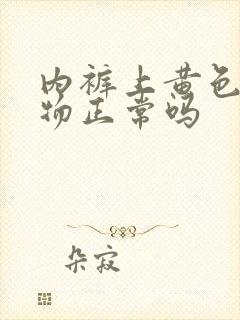 内裤上黄色
物正常吗
朵寂